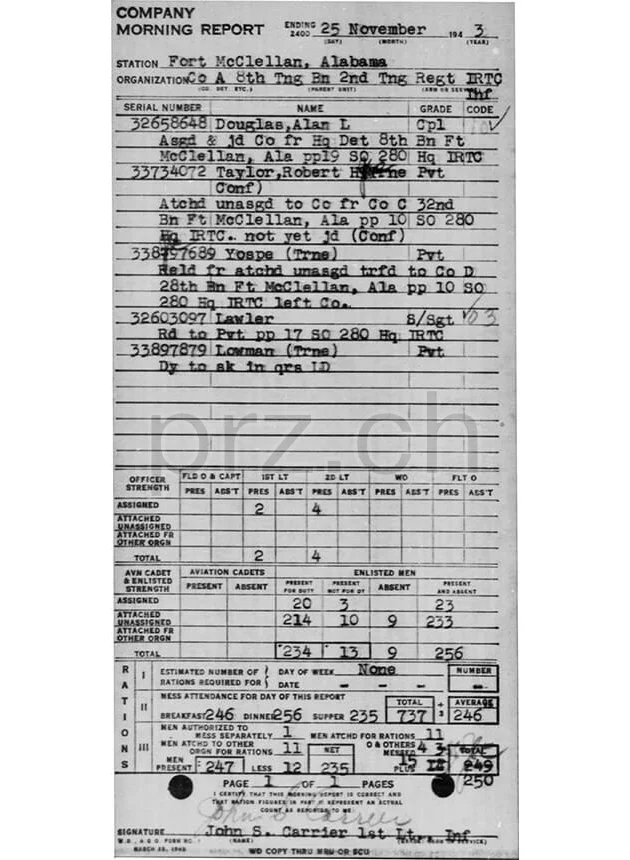 COMPANY
MORNING REPORT ENDING 2400 25 November 194 3
(DAY) (MONTH) (YEAR)
STATION Fort McClellan, Alabama
ORGANIZATION Co A 8th Tng Bn 2nd Tng Regt IRTC
(CO. DET. ETC.) (PARENT UNIT) Inf
SERIAL NUMBER NAME GRADE CODE
32658648 Douglas, Alan L Cpl
Asgd & jd Co fr Hq Det 8th Bn Ft
McClellan, Ala pp19 SO 280 Hq IRTC
33734072 Taylor, Robert Pvt
Conf)
Atchd unasgd to Co fr Co C 32nd
Bn Ft McClellan, Ala pp 10 SO 280
Hq IRTC. not yet jd (Conf)
338797689 Yospe (Trne) Pvt
Reld fr atchd unasgd trfd to Co D
28th Bn Ft McClellan, Ala pp 10 SO
280 Hq IRTC left Co.
32603097 Lawler S/Sgt
Rd to Pvt pp 17 SO 280 Hq IRTC
33897879 Lowman (Trne) Pvt
Dy to sk in qrs LD
prz.ch
OFFICER STRENGTH FLD O & CAPT 1ST LT 2D LT WO FLT O
PRES ABS'T PRES ABS'T PRES ABS'T PRES ABS'T PRES ABS'T
ASSIGNED 2 4
ATTACHED UNASSIGNED
ATTACHED FR OTHER ORGN
TOTAL 2 4
AVN CADET & ENLISTED STRENGTH AVIATION CADETS ENLISTED MEN
PRESENT ABSENT PRESENT FOR DUTY PRESENT NOT FOR DY ABSENT PRESENT AND ABSENT
ASSIGNED 20 3 23
ATTACHED UNASSIGNED 214 10 9 233
ATTACHED FR OTHER ORGN
TOTAL 234 13 9 256
RATIONS
I ESTIMATED NUMBER OF RATIONS REQUIRED FOR DAY OF WEEK None NUMBER
DATE - - - -
II MESS ATTENDANCE FOR DAY OF THIS REPORT
BREAKFAST 246 DINNER 256 SUPPER 235 TOTAL 737 ÷ 3 AVERAGE 246
III MEN AUTHORIZED TO MESS SEPARATELY 1 MEN ATCHD FOR RATIONS 11
MEN ATCHD TO OTHER ORGN FOR RATIONS 11 NET O & OTHERS MESSED 4 3 TOTAL
MEN PRESENT 247 LESS 12 235 PLUS 15 249
250
PAGE 1 OF 1 PAGES
I CERTIFY THAT THIS MORNING REPORT IS CORRECT AND
THAT RATION FIGURES IN PART III REPRESENT AN ACTUAL
COUNT AS REPORTED TO ME:
John S Carrier
SIGNATURE John S. Carrier 1st Lt., Inf
W.D., A.G.O. FORM NO. 1 (NAME)
MARCH 15, 1943 WD COPY THRU MRU OR SCU